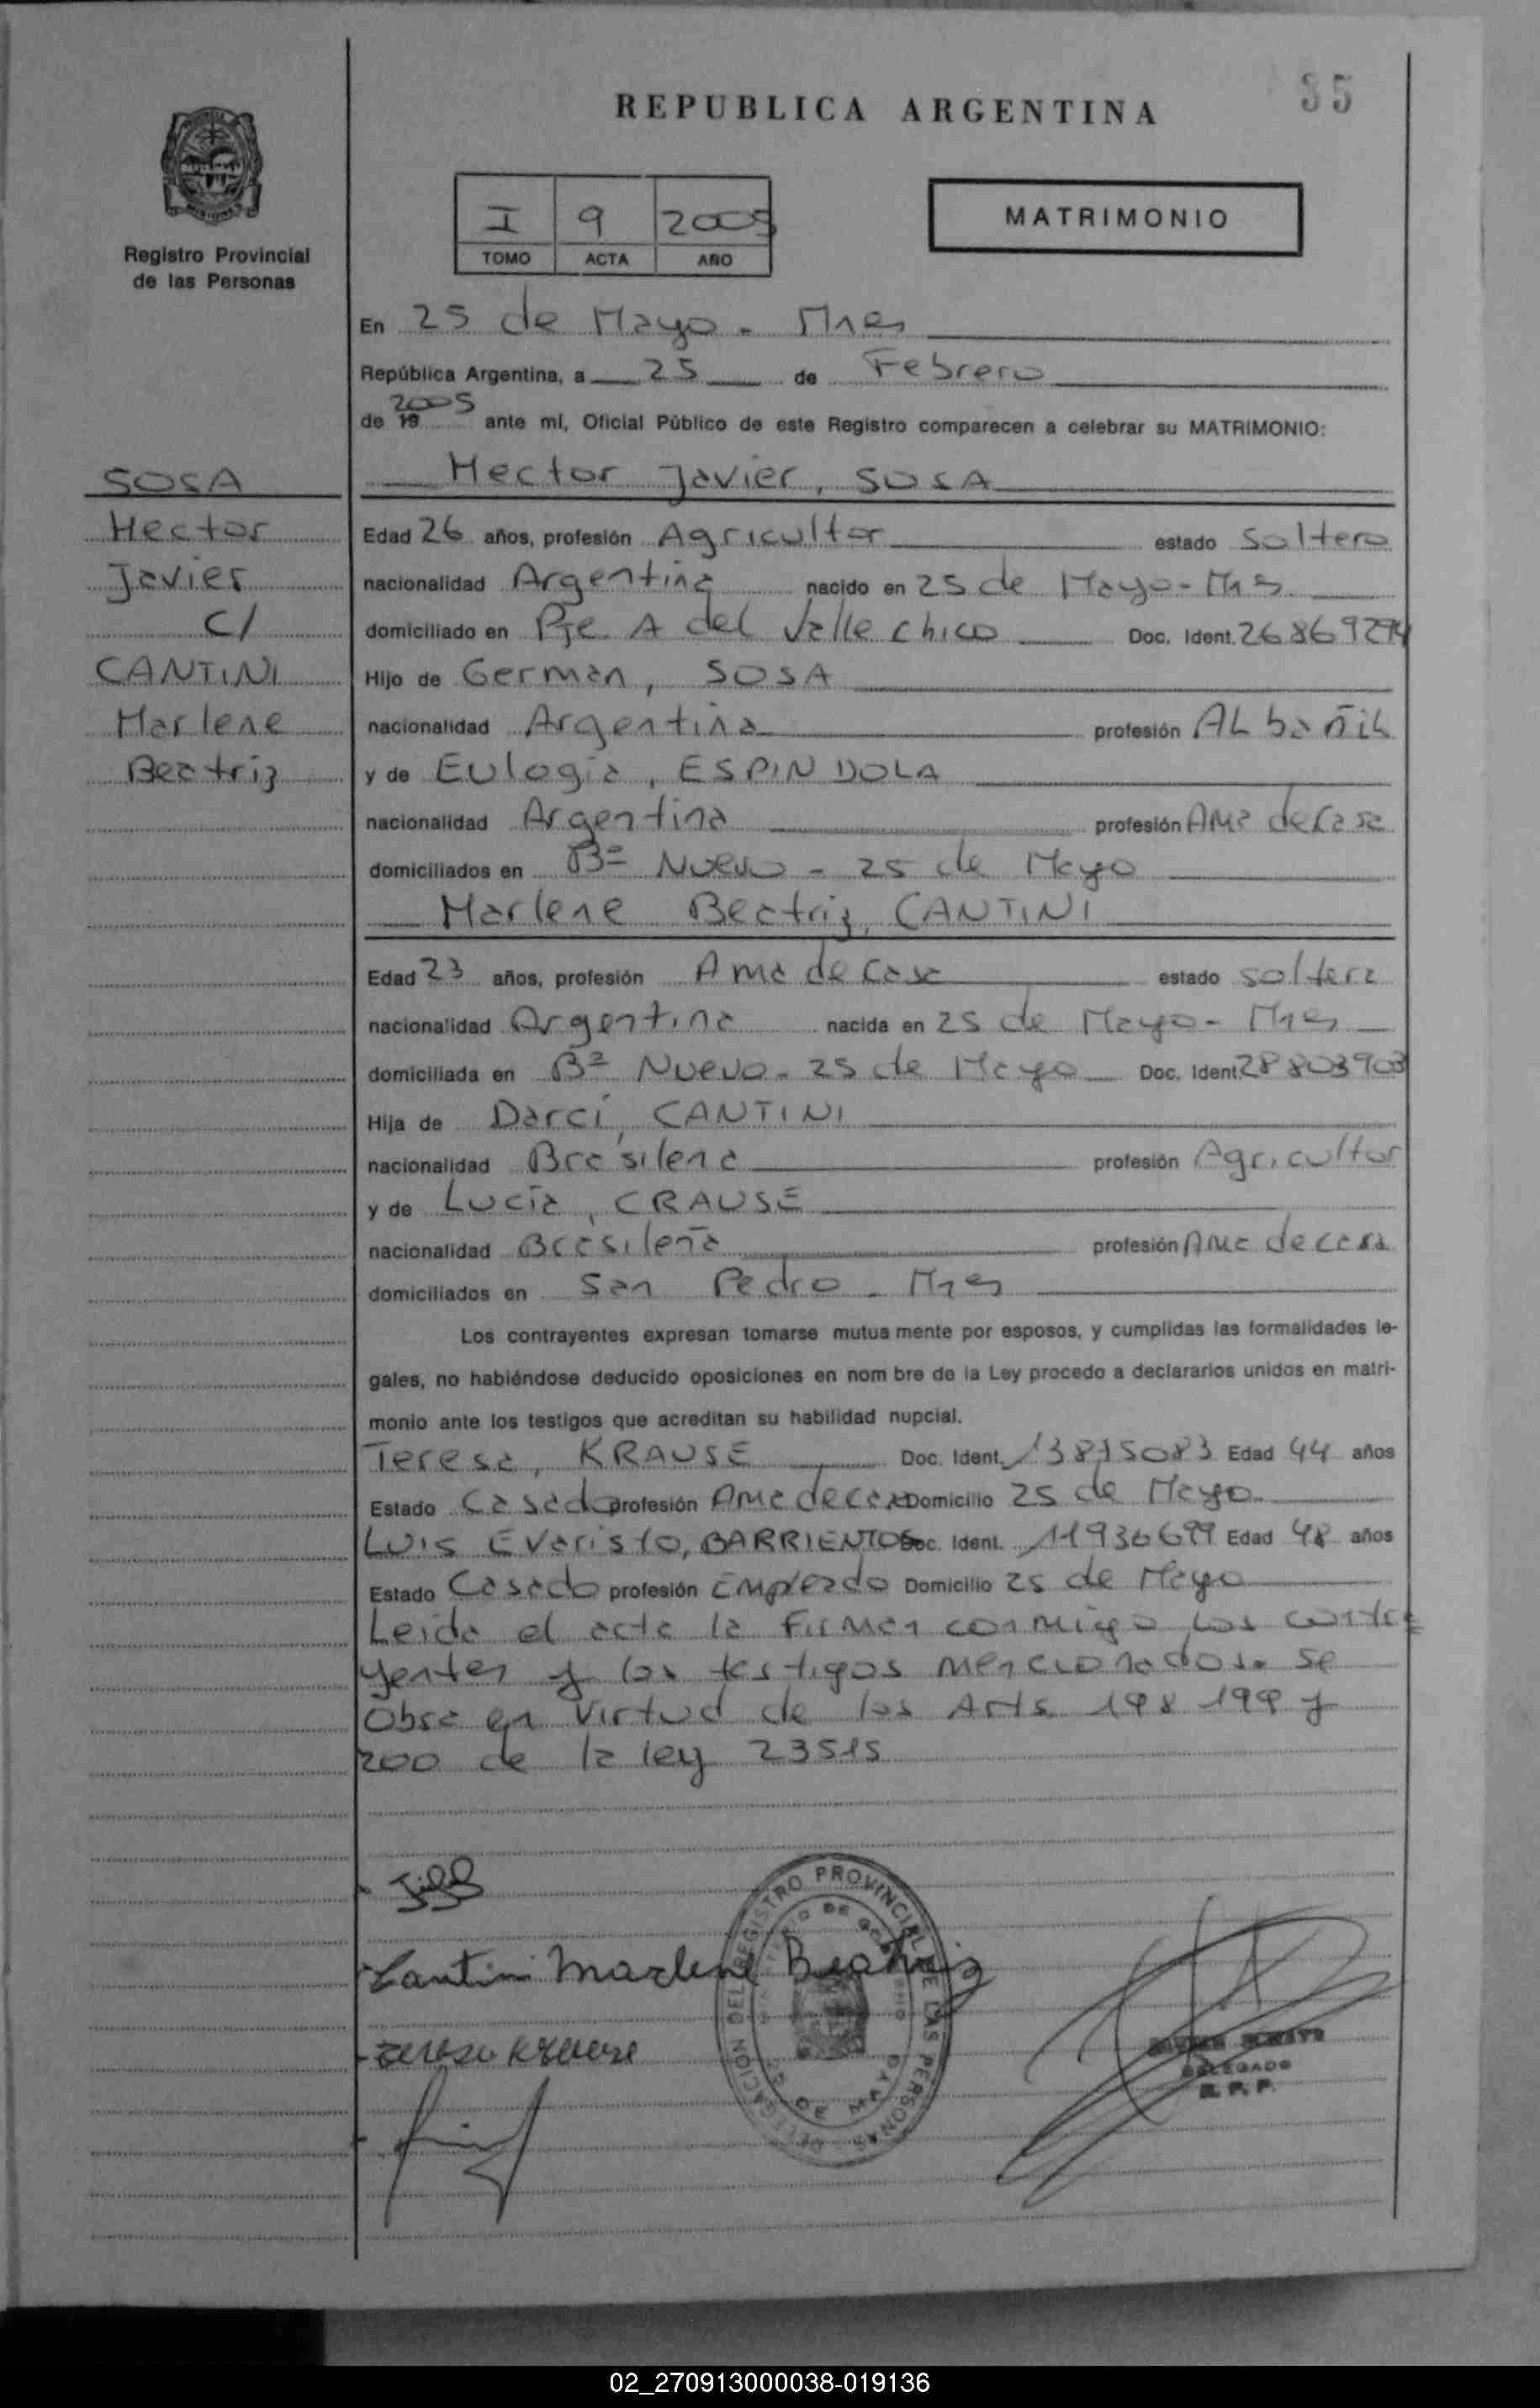 35
REPUBLICA ARGENTINA
I 9 2005
TOMO ACTA AÑO
MATRIMONIO
Registro Provincial
de las Personas
En 25 de Mayo - Mnes
República Argentina, a 25 de Febrero
de 19 2005 ante mí, Oficial Público de este Registro comparecen a celebrar su MATRIMONIO:
SOSA
Hector
Javier
C/
CANTINI
Marlene
Beatriz
Hector Javier, SOSA
Edad 26 años, profesión Agricultor estado Soltero
nacionalidad Argentina nacido en 25 de Mayo - Mns
domiciliado en Pje. A del Valle Chico Doc. Ident. 26869294
Hijo de German, SOSA
nacionalidad Argentina profesión ALbañiL
y de Eulogia, ESPINDOLA
nacionalidad Argentina profesión Ama de Casa
domiciliados en Bº Nuevo - 25 de Mayo
Marlene Beatriz, CANTINI
Edad 23 años, profesión Ama de Casa estado soltera
nacionalidad Argentina nacida en 25 de Mayo - Mnes
domiciliada en Bº Nuevo - 25 de Mayo Doc. Ident. 28803903
Hija de Darcí, CANTINI
nacionalidad Brasilena profesión Agricultor
y de Lucía, CRAUSE
nacionalidad Brasileña profesión Ama de casa
domiciliados en San Pedro - Mnes
Los contrayentes expresan tomarse mutua mente por esposos, y cumplidas las formalidades le-
gales, no habiéndose deducido oposiciones en nom bre de la Ley procedo a declararlos unidos en matri-
monio ante los testigos que acreditan su habilidad nupcial.
Teresa, KRAUSE Doc. Ident. 13815083 Edad 44 años
Estado Casada profesión Ama de casa Domicilio 25 de Mayo
Luis Evaristo, BARRIENTOS Doc. Ident. 11936699 Edad 48 años
Estado Casado profesión Empleado Domicilio 25 de Mayo
Leida el acta la firman conmigo los contra
yentes y los testigos mencionados. se
Obra en virtud de los Arts. 198 199 y
200 de la ley 23515
Cantini Marlene Beatriz
Teresa Krause
DELEGACION DEL REGISTRO PROVINCIAL DE LAS PERSONAS
25 DE MAYO
DELEGADO
R. P. P.
02_270913000038-019136